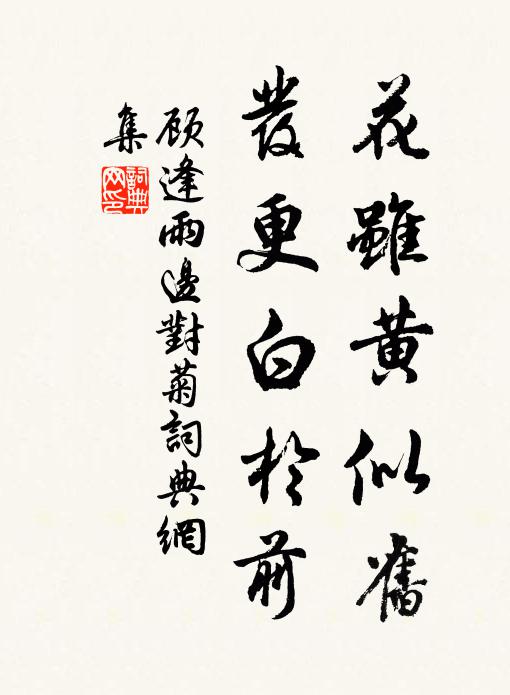 花雖黄似舊
發更白於前
顾逢雨邊對菊詞典網
集
詞典
网印